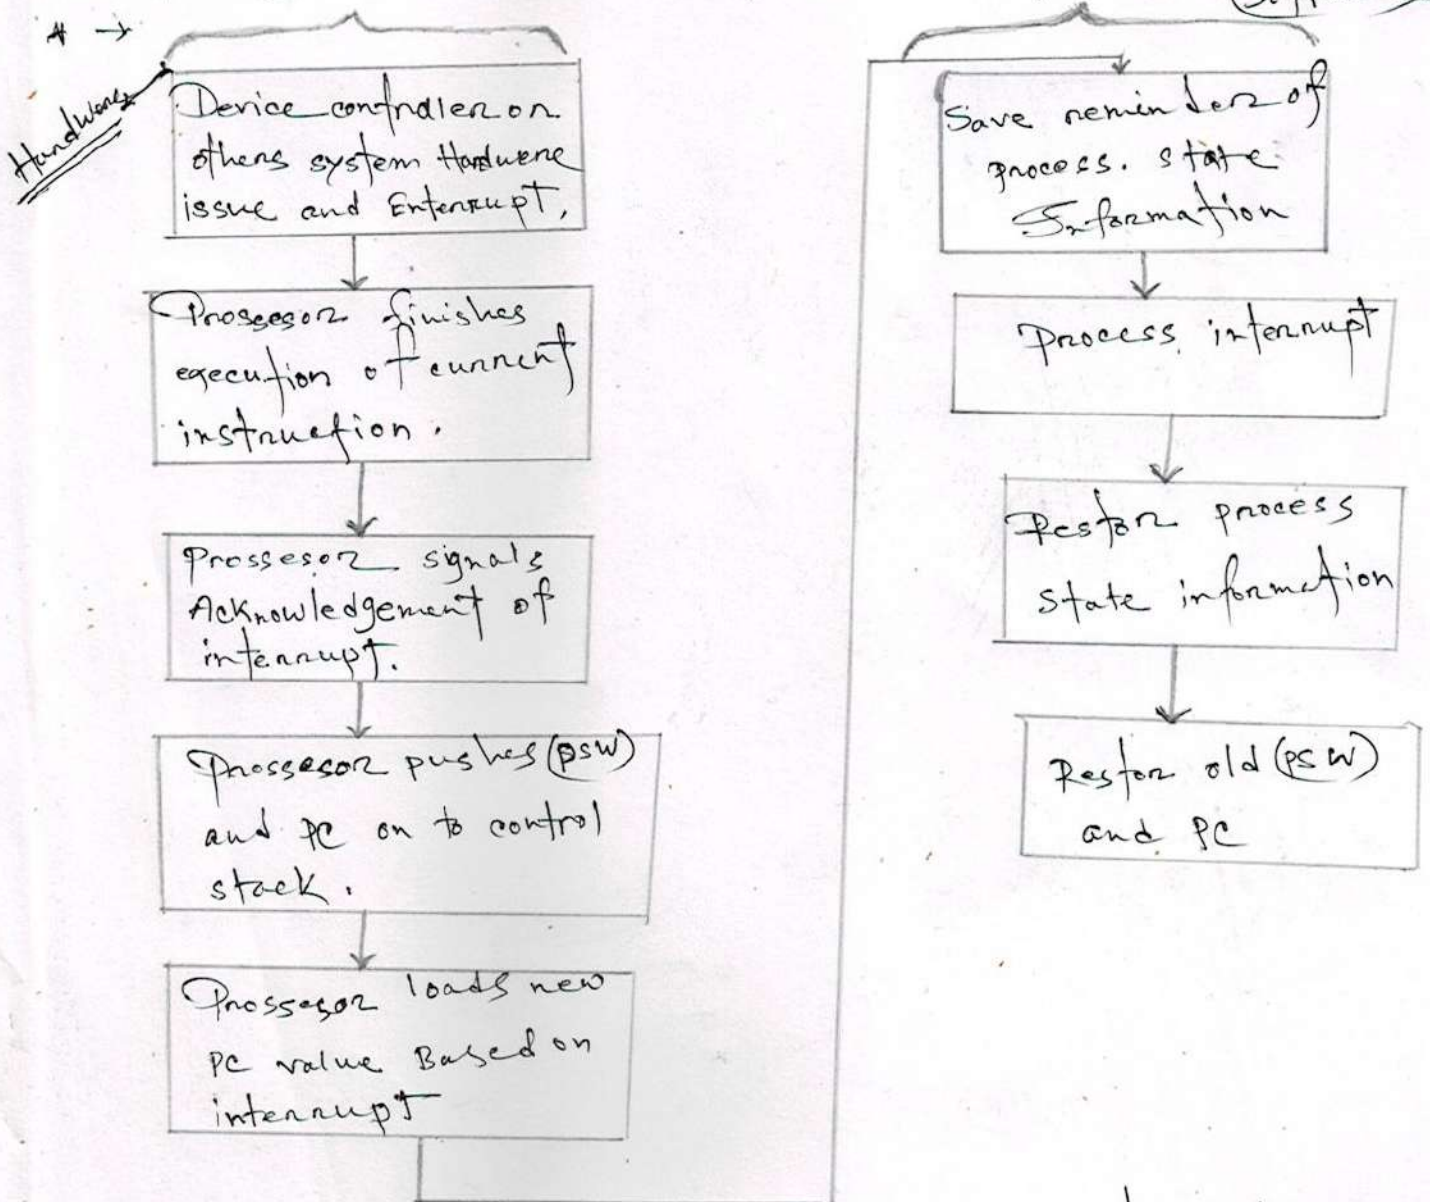 Hardwere
Device controller or
others system Hardwere
issue and Enterrupt,
Prossesor finishes
execution of current
instruction.
Prossesor signals
Acknowledgement of
interrupt.
Prossesor pushes (PSW)
and PC on to control
stack.
Prossesor loads new
PC value Based on
interrupt
Save reminder of
process. state
Information
Process interrupt
Restor process
state information
Restor old (PSW)
and PC